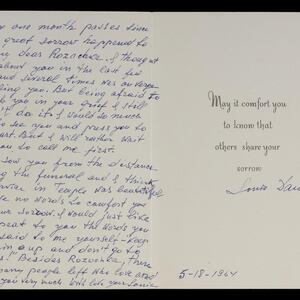 one month passes since
great sorrow happened to
my dear Rozochka. I thought
about you in the last few
and several times was on verge
calling you. But being afraid to
you in your grief I still
do it. I would so much
to see you and press you to
heart. But I will rather wait
you to call me first.
I saw you from the distance
the funeral and I think
service in Temple was beautiful.
have no words to comfort you
your sorrow. I would just like
repeat to you the words you
said to me yourself - keep
chin up, and don't go to
Besides Rozochka, there
many people left who love and
you very much. With love your Sonia
May it comfort you
to know that
others share your
sorrow
5-18-1964